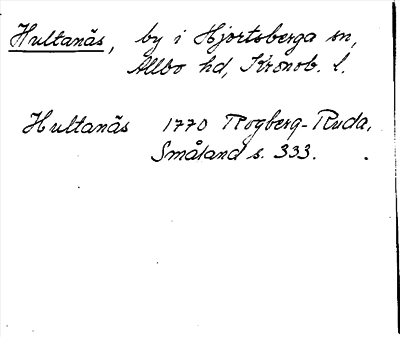 Hultanäs, by i Hjortsberga sn,
Allbo hd, Kronob. l.
Hultanäs 1770 Rogberg-Ruda,
Småland s. 333.